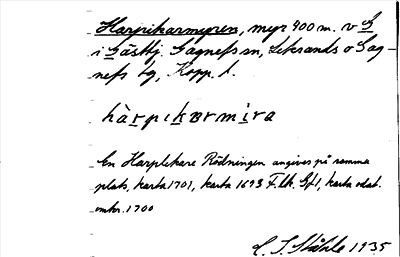 Harpikarmyren, myr 400 m. v G
i Gästbj. Gagnefs sn, Leksands o Gag-
nefs tg, Kopp. l.
hàrpıkɐrmìra
En Harplekare Rödningen angives på samma
plats, karta 1701, karta 1693 F.lk. Gf1, karta odat.
omkr. 1700
C. I. Ståhle 1935